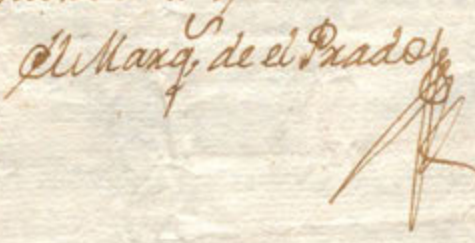 El Marq.s de el Prado